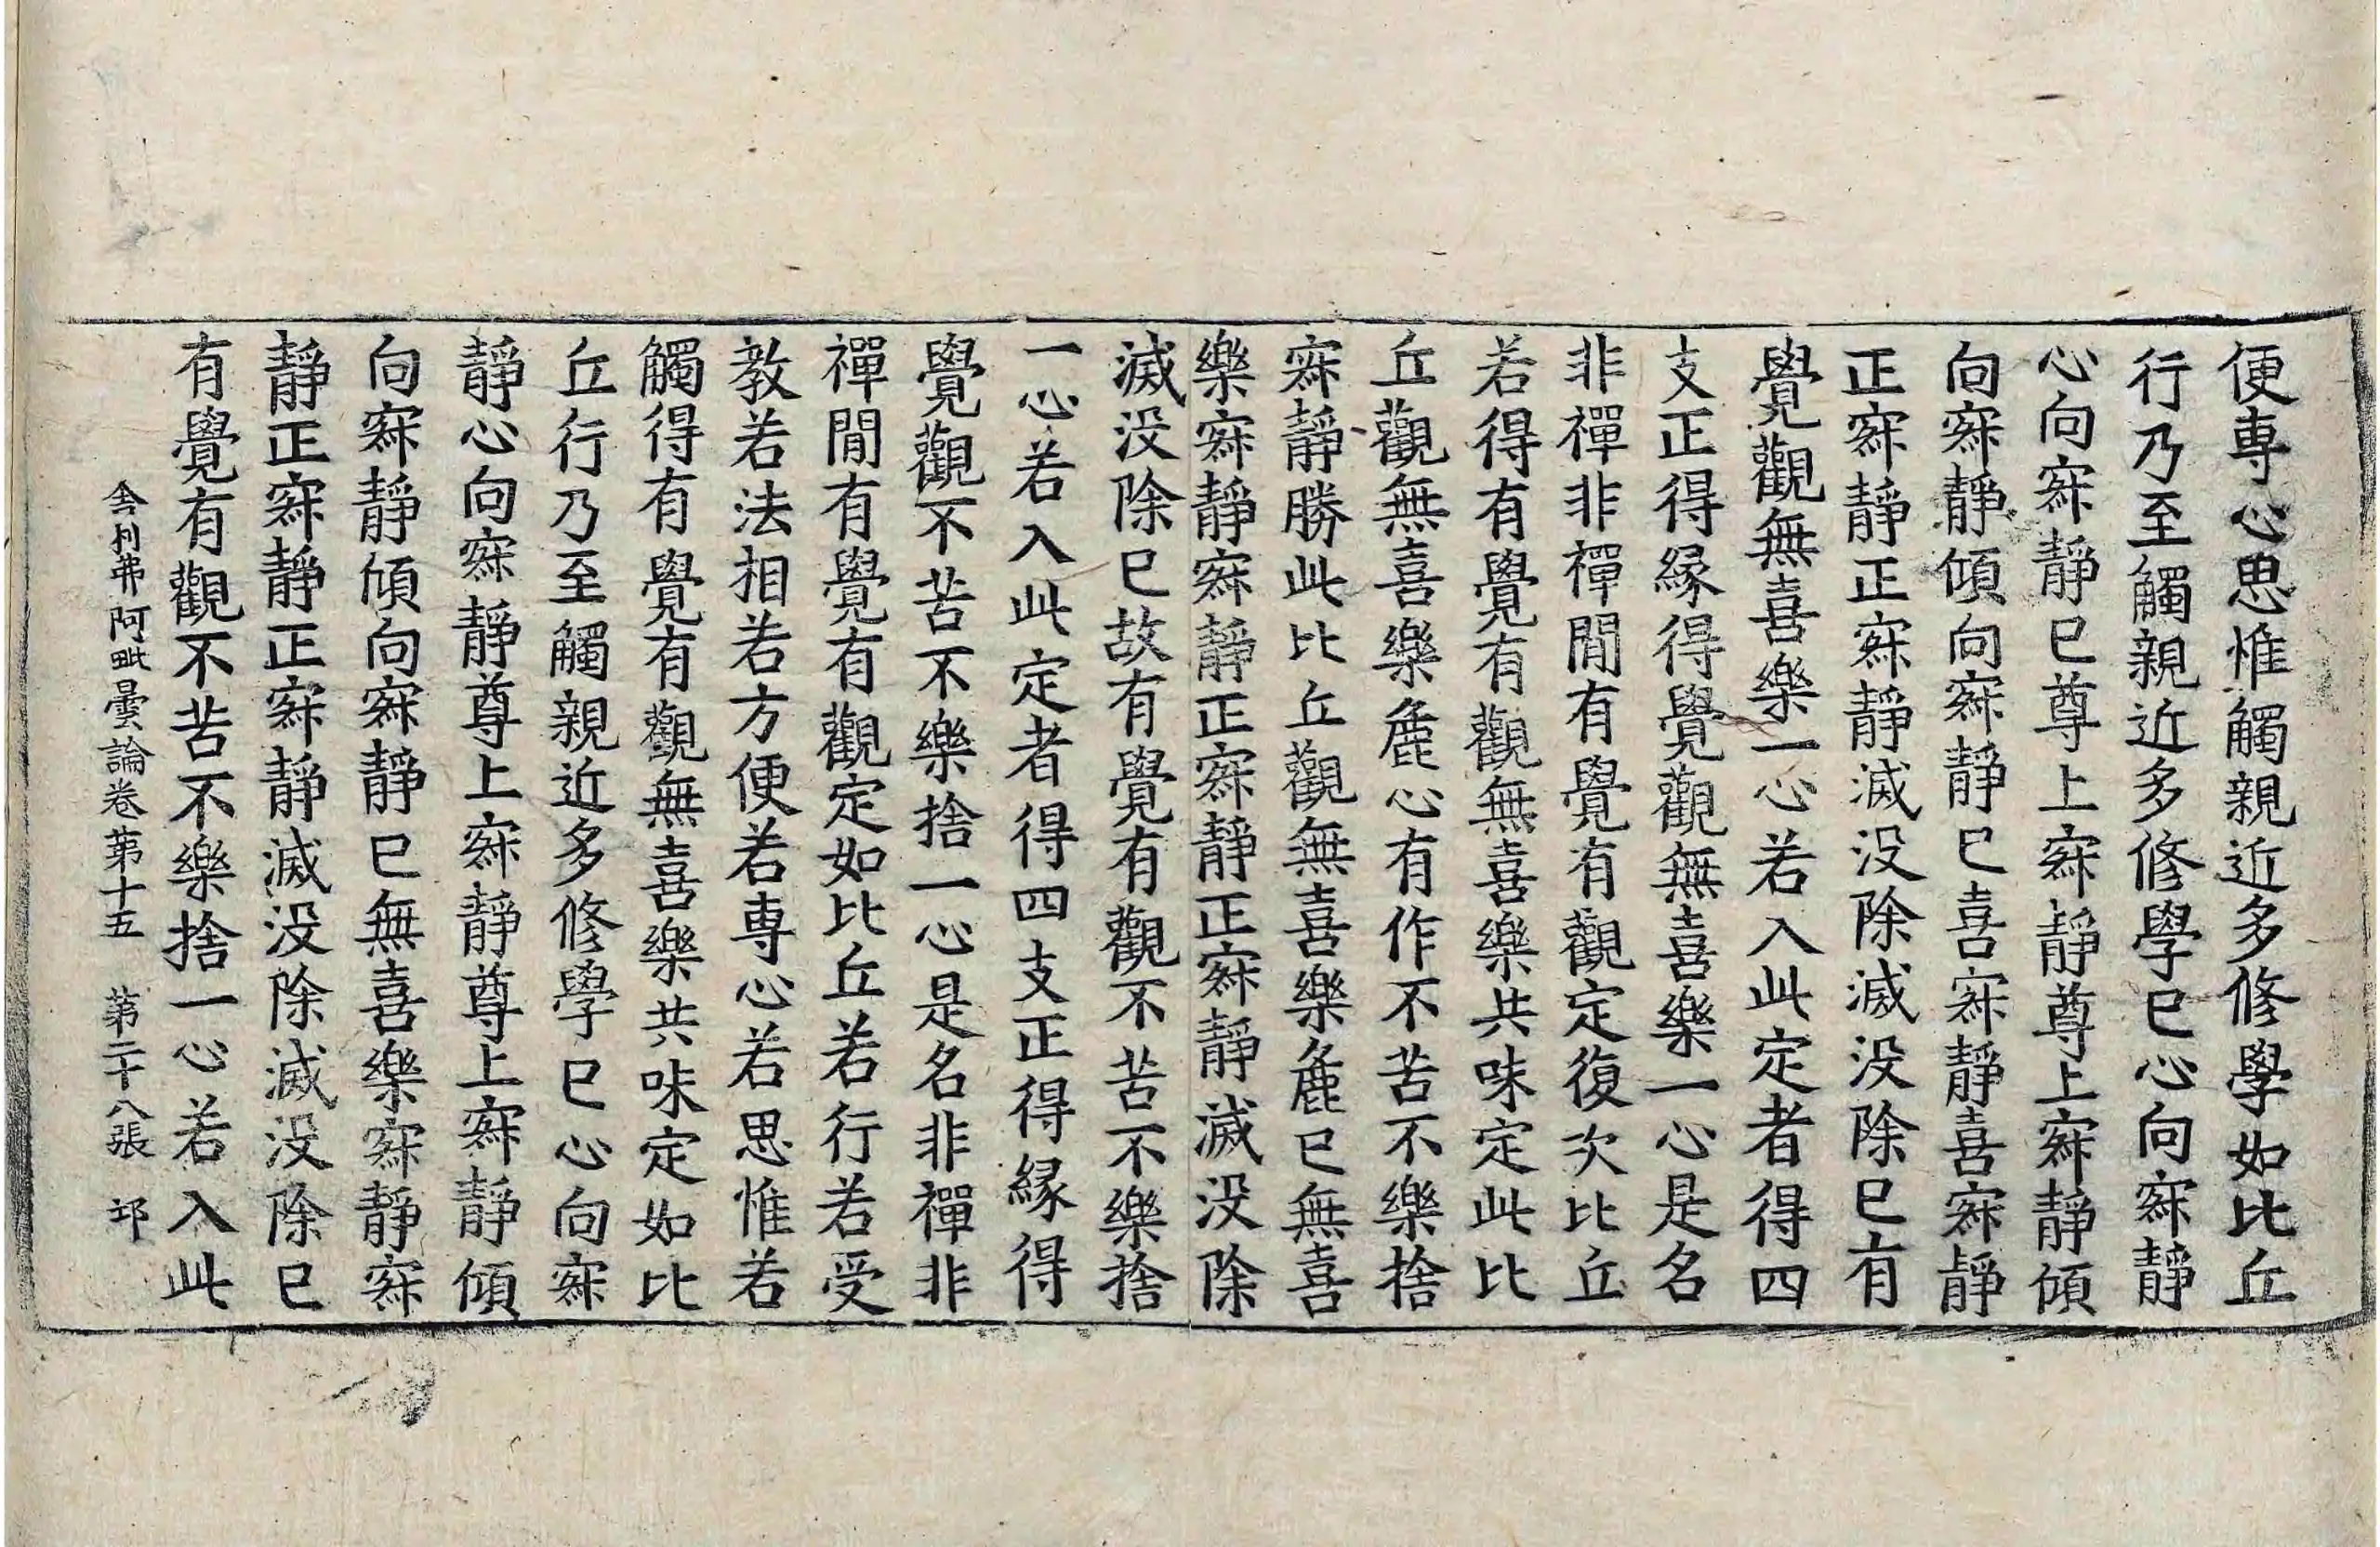 便專心思惟觸親近多修學如比丘
行乃至觸親近多修學已心向寂靜
心向寂靜已尊上寂靜尊上寂靜傾
向寂靜傾向寂靜已喜寂靜喜寂靜
正寂靜正寂靜滅没除滅没除已有
覺觀無喜樂一心若入此定者得四
支正得緣得覺觀無喜樂一心是名
非禪非禪間有覺有觀定復次比丘
若得有覺有觀無喜樂共味定此比
丘觀無喜樂麁心有作不苦不樂捨
寂靜勝此比丘觀無喜樂麁已無喜
樂寂靜寂靜正寂靜正寂靜滅没除
滅没除已故有覺有觀不苦不樂捨
一心若入此定者得四支正得緣得
覺觀不苦不樂捨一心是名非禪非
禪間有覺有觀定如比丘若行若受
教若法相若方便若專心若思惟若
觸得有覺有觀無喜樂共味定如比
丘行乃至觸親近多修學已心向寂
靜心向寂靜尊上寂靜尊上寂靜傾
向寂靜傾向寂靜已無喜樂寂靜寂
靜正寂靜正寂靜滅没除滅没除已
有覺有觀不苦不樂捨一心若入此
舍利弗阿毗曇論卷第十五 第二十八張 邛